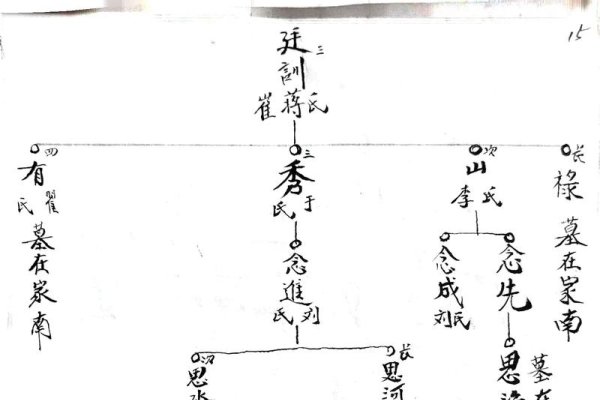 15
三
廷訓
崔蔣氏
长
祿
墓在家南
次
山
李氏
三
秀
于氏
四
有
翟氏
墓在家南
念先
念成
刘氏
念進
刘氏
思
墓在
长
思河
次
思水